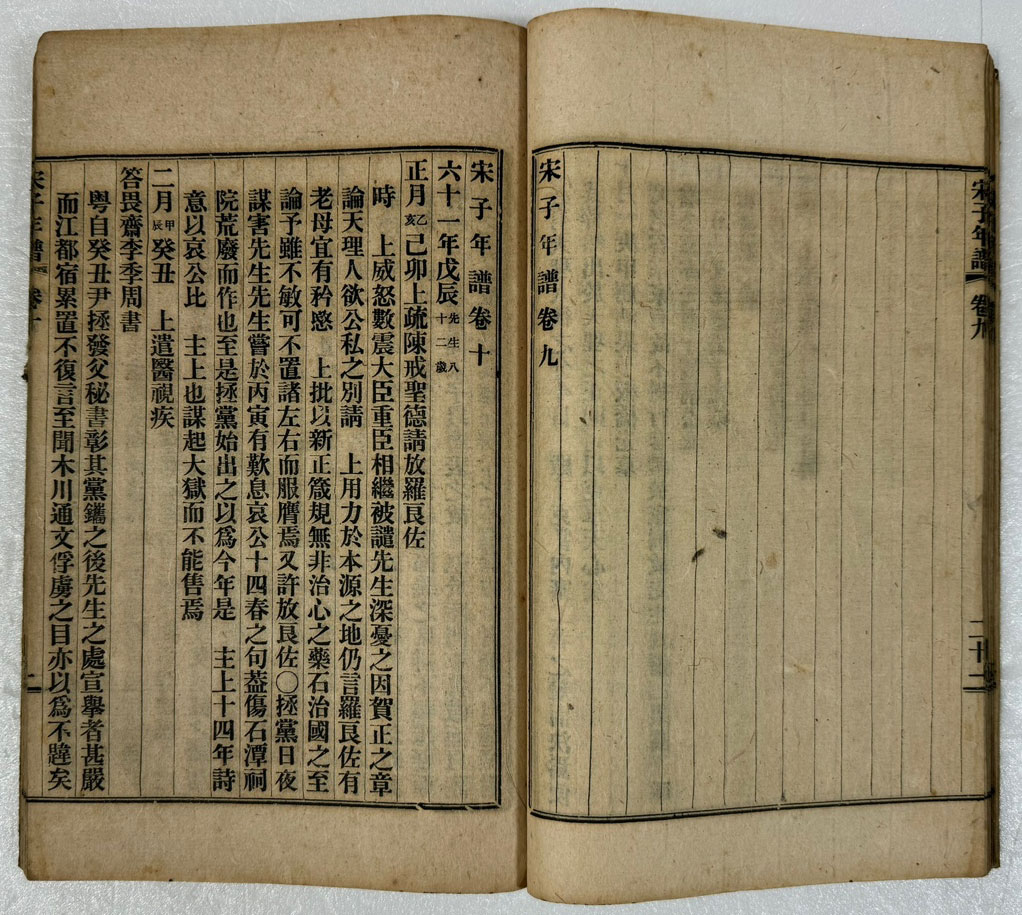 宋子年譜 卷九
二十二
宋子年譜卷九
宋子年譜卷十
六十一年戊辰先生八十二歲
正月乙亥己卯上疏陳戒聖德請放羅良佐
時 上威怒數震大臣重臣相繼被譴先生深憂之因賀正之章
論天理人欲公私之別請 上用力於本源之地仍言羅良佐有
老母宜有矜愍 上批以新正箴規無非治心之藥石治國之至
論予雖不敏可不置諸左右而服膺焉又許放良佐〇拯黨日夜
謀害先生先生嘗於丙寅有歎息哀公十四春之句葢傷石潭祠
院荒廢而作也至是拯黨始出之以爲今年是 主上十四年詩
意以哀公比 主上也謀起大獄而不能售焉
二月甲辰癸丑 上遣醫視疾
答畏齋李季周書
粤自癸丑尹拯發父秘書彰其黨鑴之後先生之處宣擧者甚嚴
而江都宿累置不復言至聞木川通文俘虜之目亦以爲不韙矣
宋子年譜 卷十
一